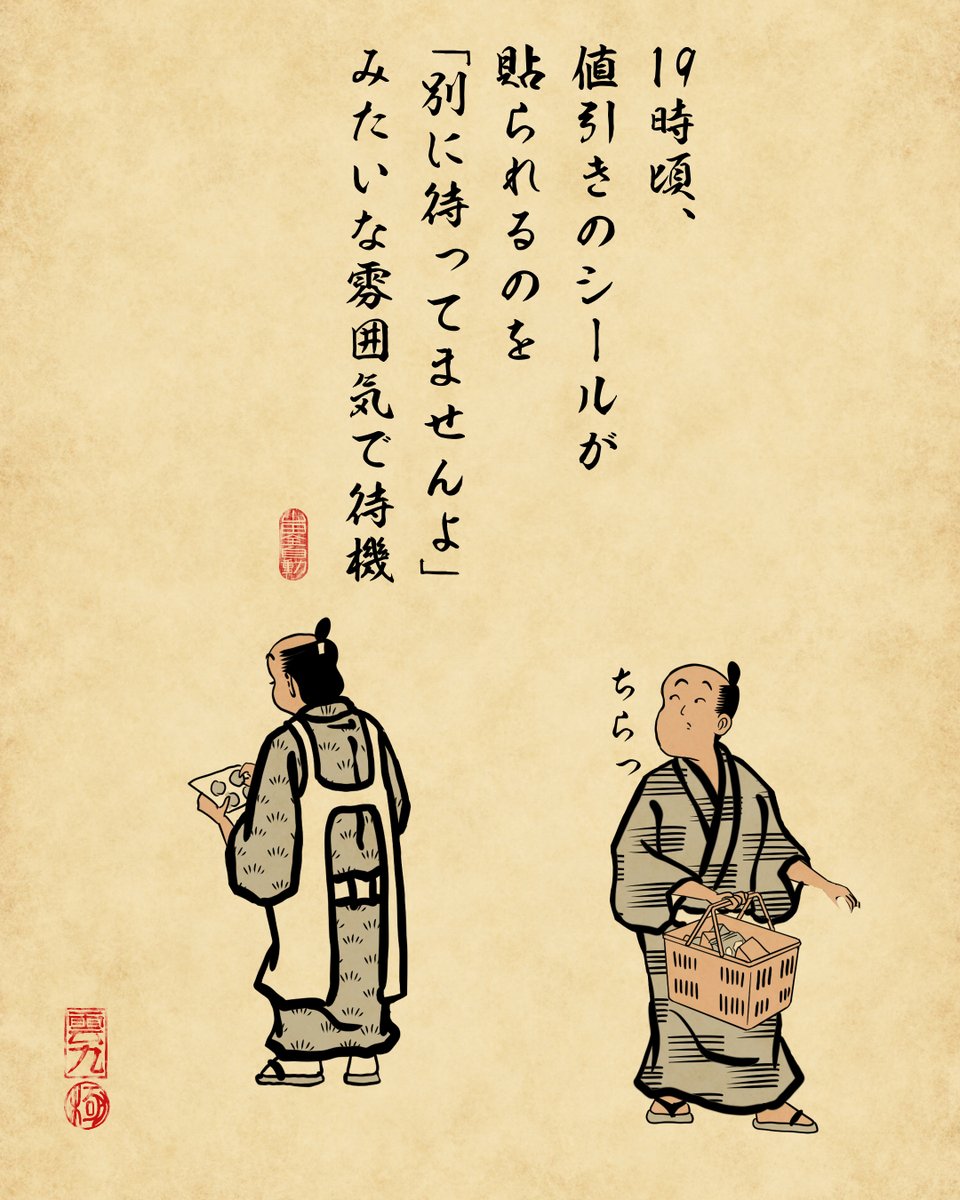 19時頃、
値引きのシールが
貼られるのを
「別に待ってませんよ」
みたいな雰囲気で待機
ちらっ